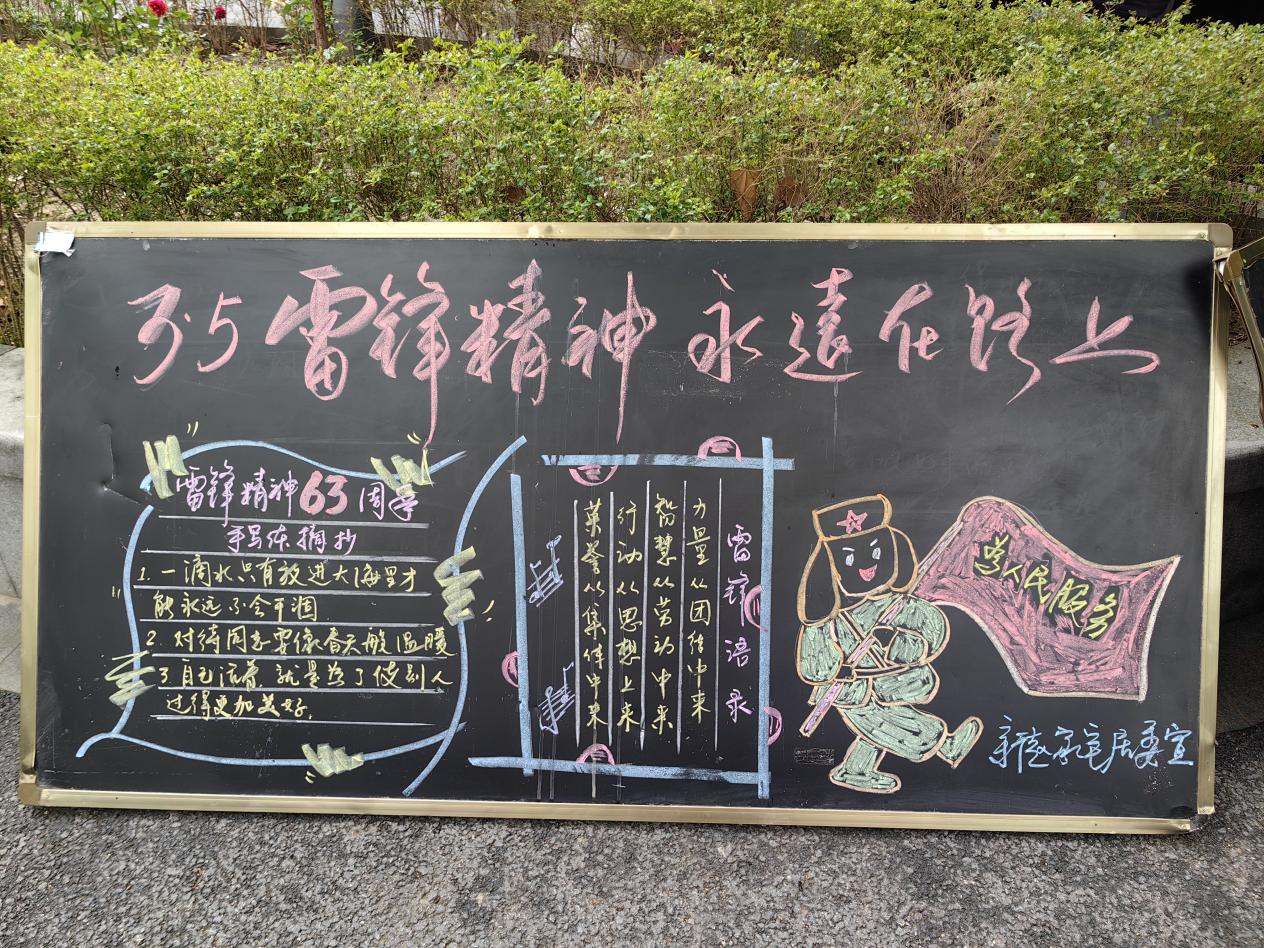 3·5雷锋精神永遠在路上
雷锋精神63周年
手写体摘抄
1. 一滴水只有放进大海里才
能永远不会干涸
2. 对待同志要像春天般温暖
3 自己活着就是为了使别人
过得更加美好.
雷锋语录
力量从团结中来
智慧从劳动中来
行动从思想上来
荣誉从集体中来
为人民服务
居委宣